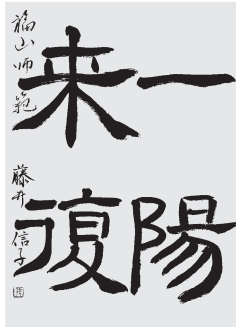 一陽
来復
福山师范 藤井信子